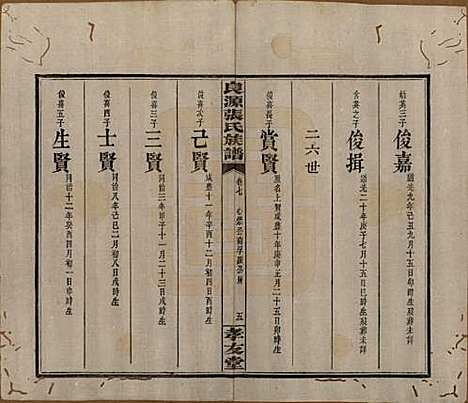 結英三子
俊嘉
道光九年己丑九月十五日卯時生歿葬未詳
含英之子
俊揖
道光二十年庚子七月十五日巳時生歿葬未詳
二六世
俊喜長子
賞賢
原名上賢咸豐十年庚申正月二十五日卯時生
良源張氏族譜
卷七
五
孝友堂
俊喜次子
己賢
咸豐十一年辛酉十二月初四日酉時生
俊喜三子
三賢
同治三年甲子十一月二十三日戌時生
俊喜四子
士賢
同治八年己巳二月初八日戌時生
俊喜五子
生賢
同治十二年癸酉四月初一日時生